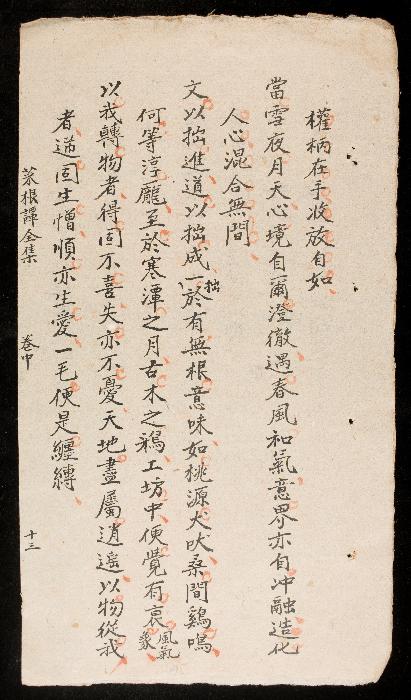 權柄在手收放自如
當雪夜月天心境自爾澄徹遇春風和氣意界亦自冲融造化
人心混合無間
文以拙進道以拙成一拙於有無根意味如桃源犬吠桑間鷄鳴
何等淳龐至於寒潭之月古木之鴉工坊中便覺有衰風氣象
以我轉物者得固不喜失亦不憂天地盡屬逍遙以物從我
者逆固生憎順亦生愛一毛便是纏縛
菜根譚全集 卷中 十三